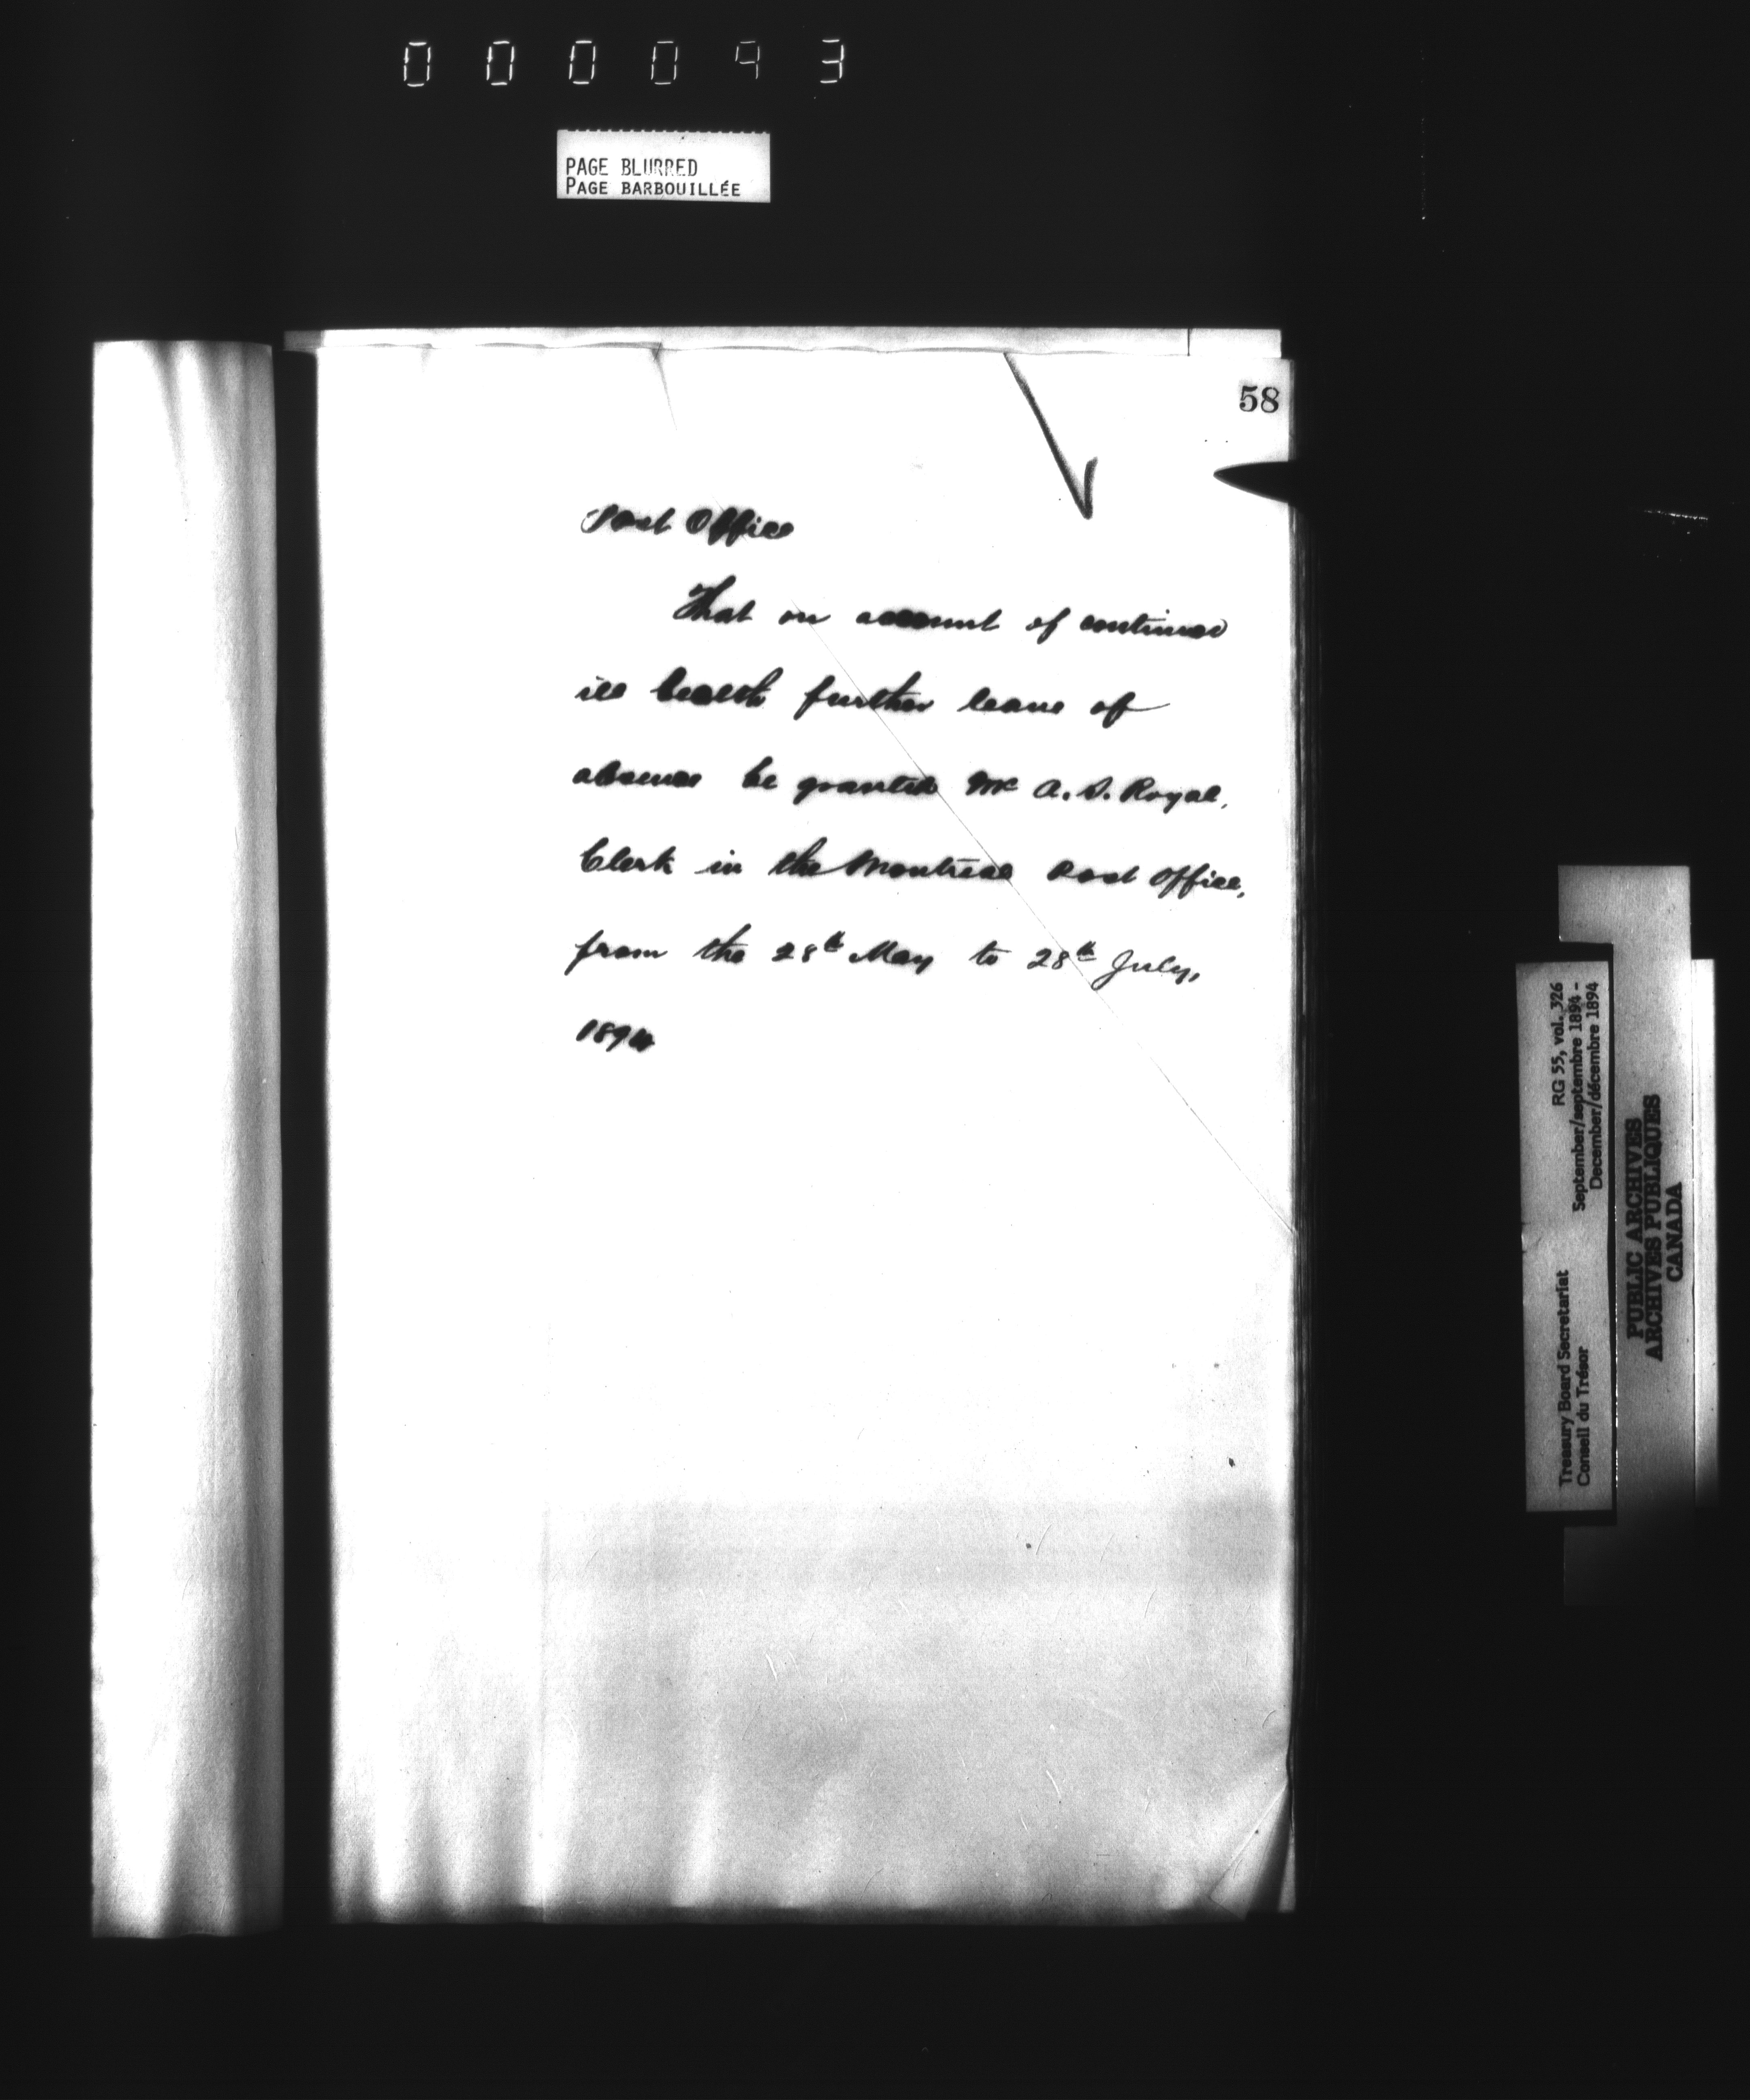 000093
PAGE BLURRED
PAGE BARBOUILLÉE
58
Post Office
That on account of continued
ill health further leave of
absence be granted Mr A. S. Royal,
Clerk in the Montreal Post Office,
from the 28th May to 28th July,
1894
RG 55, vol. 326
September/septembre 1894 -
December/décembre 1894
Treasury Board Secretariat
Conseil du Trésor
PUBLIC ARCHIVES
ARCHIVES PUBLIQUES
CANADA